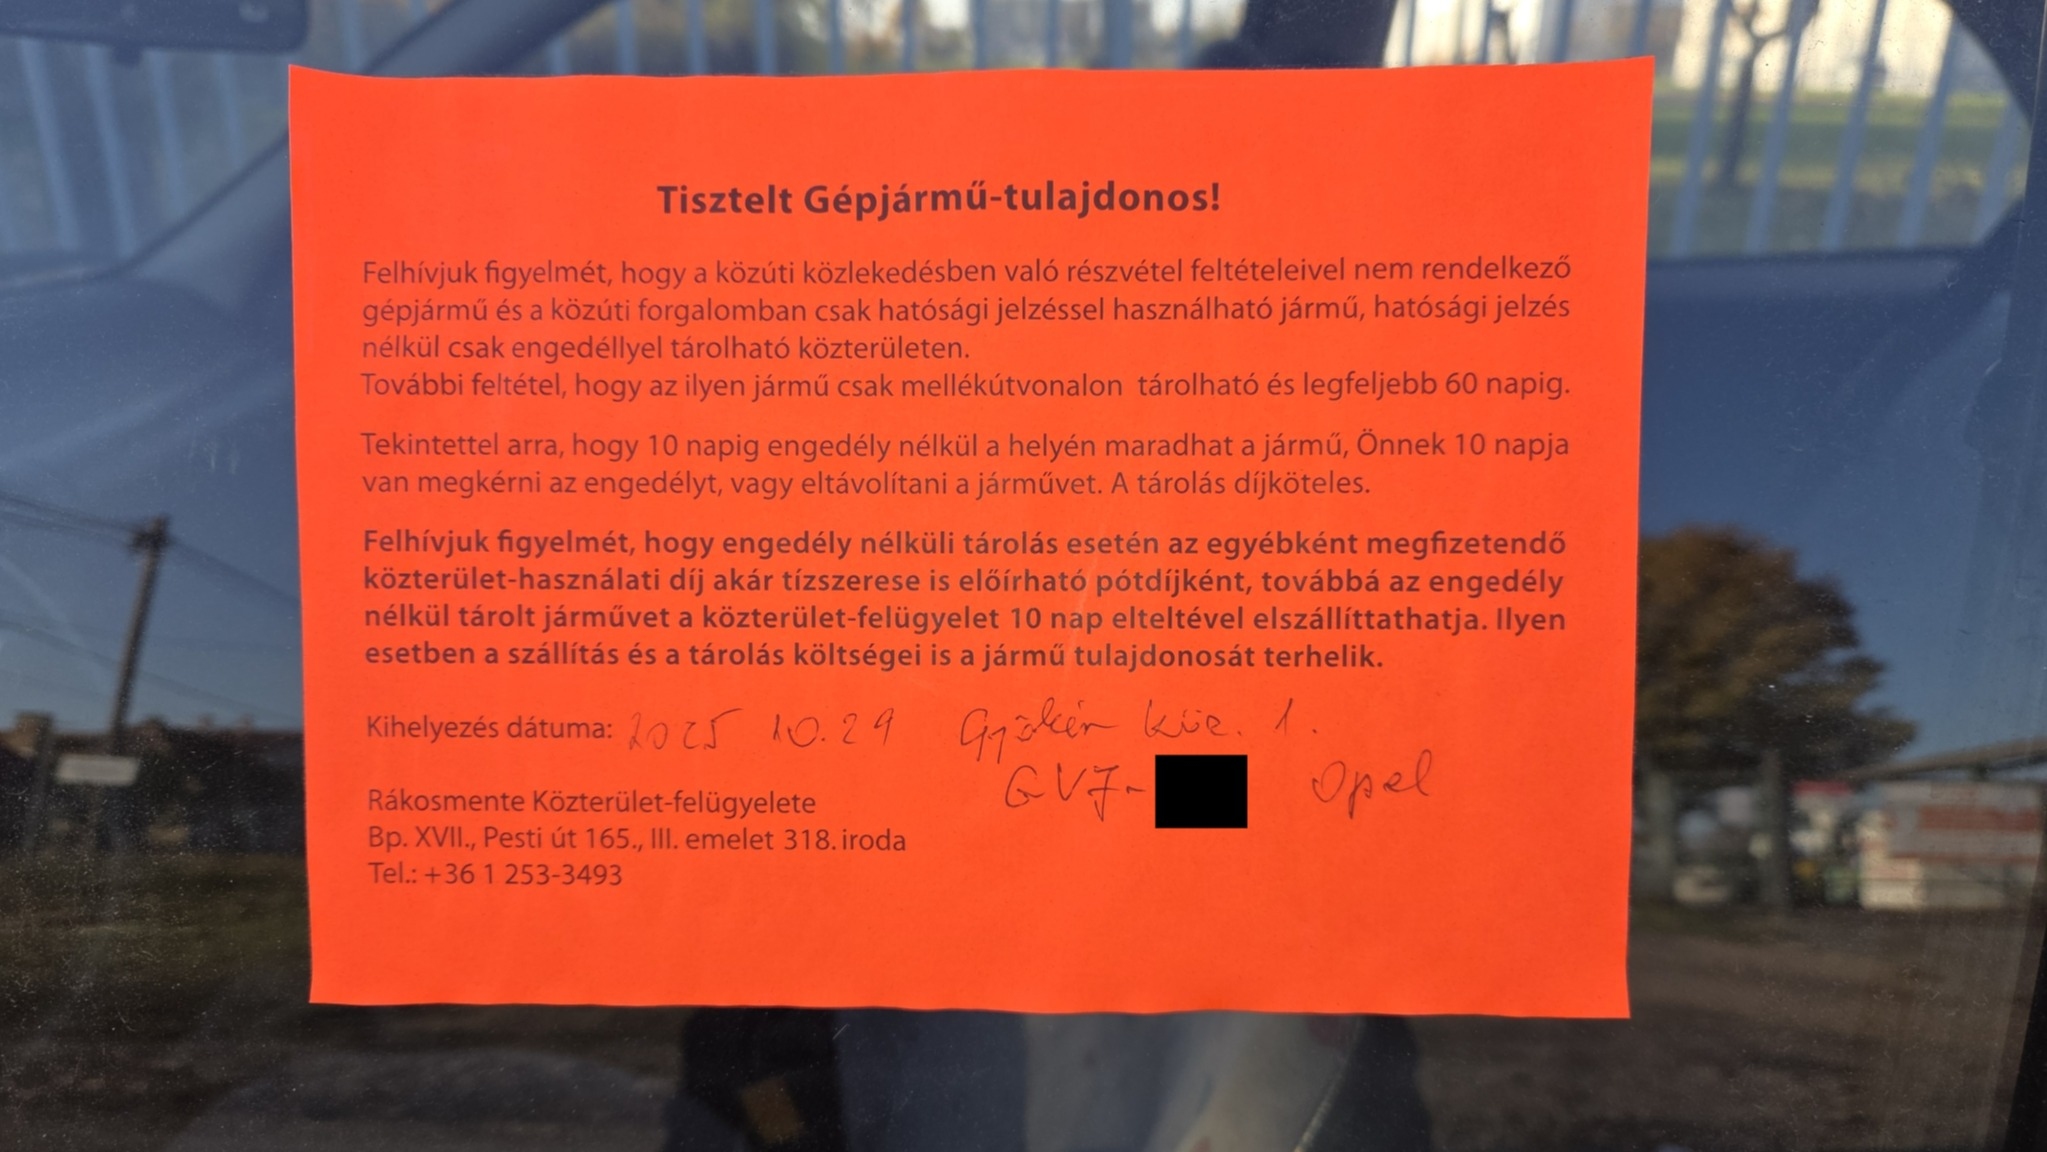 Tisztelt Gépjármű-tulajdonos!
Felhívjuk figyelmét, hogy a közúti közlekedésben való részvétel feltételeivel nem rendelkező
gépjármű és a közúti forgalomban csak hatósági jelzéssel használható jármű, hatósági jelzés
nélkül csak engedéllyel tárolható közterületen.
További feltétel, hogy az ilyen jármű csak mellékútvonalon tárolható és legfeljebb 60 napig.
Tekintettel arra, hogy 10 napig engedély nélkül a helyén maradhat a jármű, Önnek 10 napja
van megkérni az engedélyt, vagy eltávolítani a járművet. A tárolás díjköteles.
Felhívjuk figyelmét, hogy engedély nélküli tárolás esetén az egyébként megfizetendő
közterület-használati díj akár tízszerese is előírható pótdíjként, továbbá az engedély
nélkül tárolt járművet a közterület-felügyelet 10 nap elteltével elszállíttathatja. Ilyen
esetben a szállítás és a tárolás költségei is a jármű tulajdonosát terhelik.
Kihelyezés dátuma: 2025 10.29 Gyökér köz. 1.
GVJ- Opel
Rákosmente Közterület-felügyelete
Bp. XVII., Pesti út 165., III. emelet 318. iroda
Tel.: +36 1 253-3493